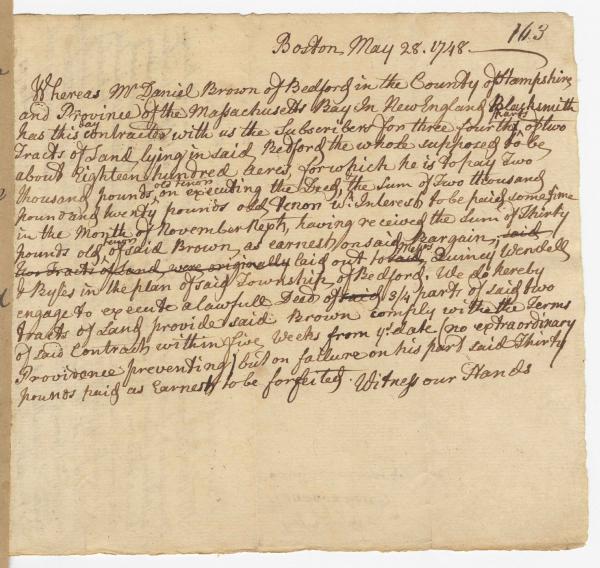 163
Boston May 28. 1748.
Whereas Mr Daniel Brown of Bedford in the County of Hampshire
and Province of the Massachusetts Bay In New England Blacksmith
has this day contracted with us the Subscribers for three fourths parts of two
Tracts of Land lying in said Bedford the whole supposed to be
about Eighteen hundred Acres, for which he is to pay Two
thousand pounds old tenor on executing the Deed, & the Sum of Two thousand
pound and twenty pounds old tenor wth Interest to be paid some time
in the Month of November Next, having received the Sum of Thirty
pounds old tenor of said Brown, as earnest on said Bargain, said
two Tracts of Land were originally laid out to said Messrs Quincy Wendell
& Byles in the plan of said Township of Bedford. We do hereby
engage to execute a lawfull Deed of said 3/4 parts of said two
tracts of Land provide said Brown comply with the Terms
of said Contract within five Weeks from ye date (no extraordinary
Providence preventing) but on failure on his part said Thirty
pounds paid as Earnest to be forfeited. Witness our Hands